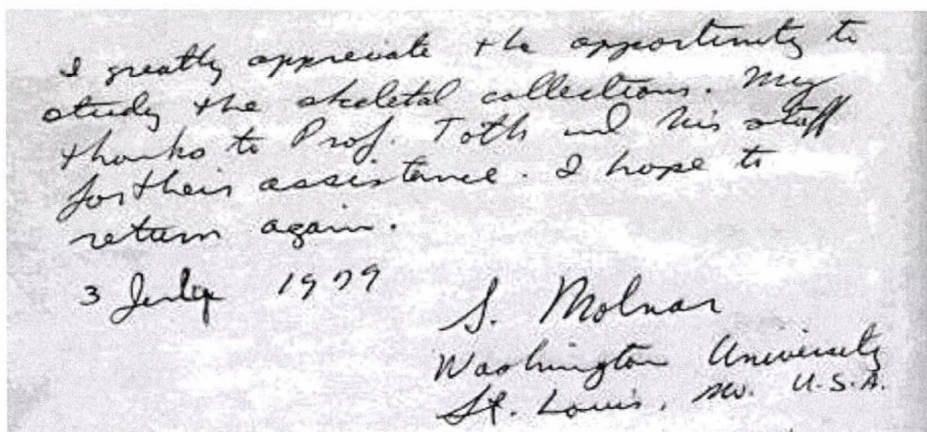 I greatly appreciate the opportunity to
study the skeletal collections. My
thanks to Prof. Toth and his staff
for their assistance. I hope to
return again.
3 July 1979
S. Molnar
Washington University
St. Louis, Mo. U.S.A.